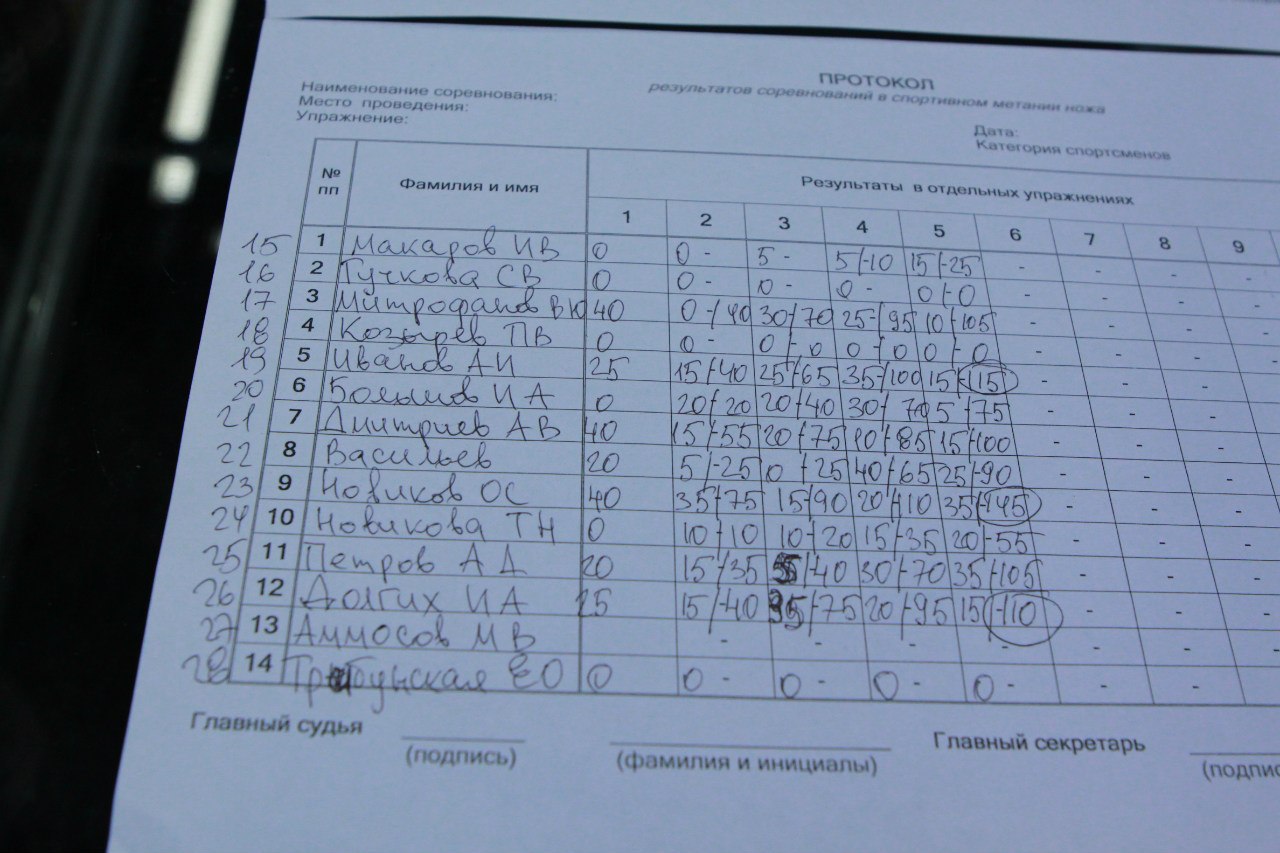 ПРОТОКОЛ
результатов соревнований в спортивном метании ножа
Наименование соревнования:
Место проведения:
Упражнение:
Дата:
Категория спортсменов
№ пп Фамилия и имя Результаты в отдельных упражнениях
1 2 3 4 5 6 7 8 9
15 1 Макаров ИВ 0 0 - 5 - 5/-10 15/-25 - - - -
16 2 Гучкова СВ 0 0 - 0 - 0 - 0/-0 - - - -
17 3 Митрофанов ВЮ 40 0 -/40 30/70 25-/95 10/105 - - - -
18 4 Козырев ПВ 0 0 - 0/-0 0/0 0/-0 - - - -
19 5 Иванов АИ 25 15/-40 25/-65 35-/100 15/-115 - - - -
20 6 ИА 0 20/20 20/40 30/-70 5/-75 - - - -
21 7 Дмитриев АВ 40 15/-55 20/-75 10/-85 15/-100 - - - -
22 8 Васильев 20 5/-25 0/-25 40/-65 25/-90 - - - -
23 9 Новиков ОС 40 35/-75 15/-90 20/110 35/-145 - - - -
24 10 Новикова ТН 0 10/-10 10/-20 15/-35 20/-55 - - - -
25 11 Петров АД 20 15/-35 5/-40 30/-70 35/-105 - - - -
26 12 Долгих ИА 25 15/-40 35/-75 20/-95 15/-110 - - - -
27 13 Аммосов МВ - - - - - - - -
28 14 ЕО 0 0 - 0 - 0 - 0 - - - -
Главный судья (подпись) (фамилия и инициалы) Главный секретарь